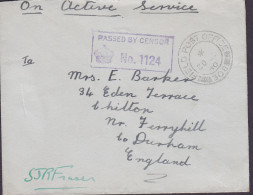 On Active Service
PASSED BY CENSOR
No. 1124
FIELD POST OFFICE
To
Mrs. E. Barker
34 Eden Terrace
Chilton
Nr. Ferryhill
Co Durham
England